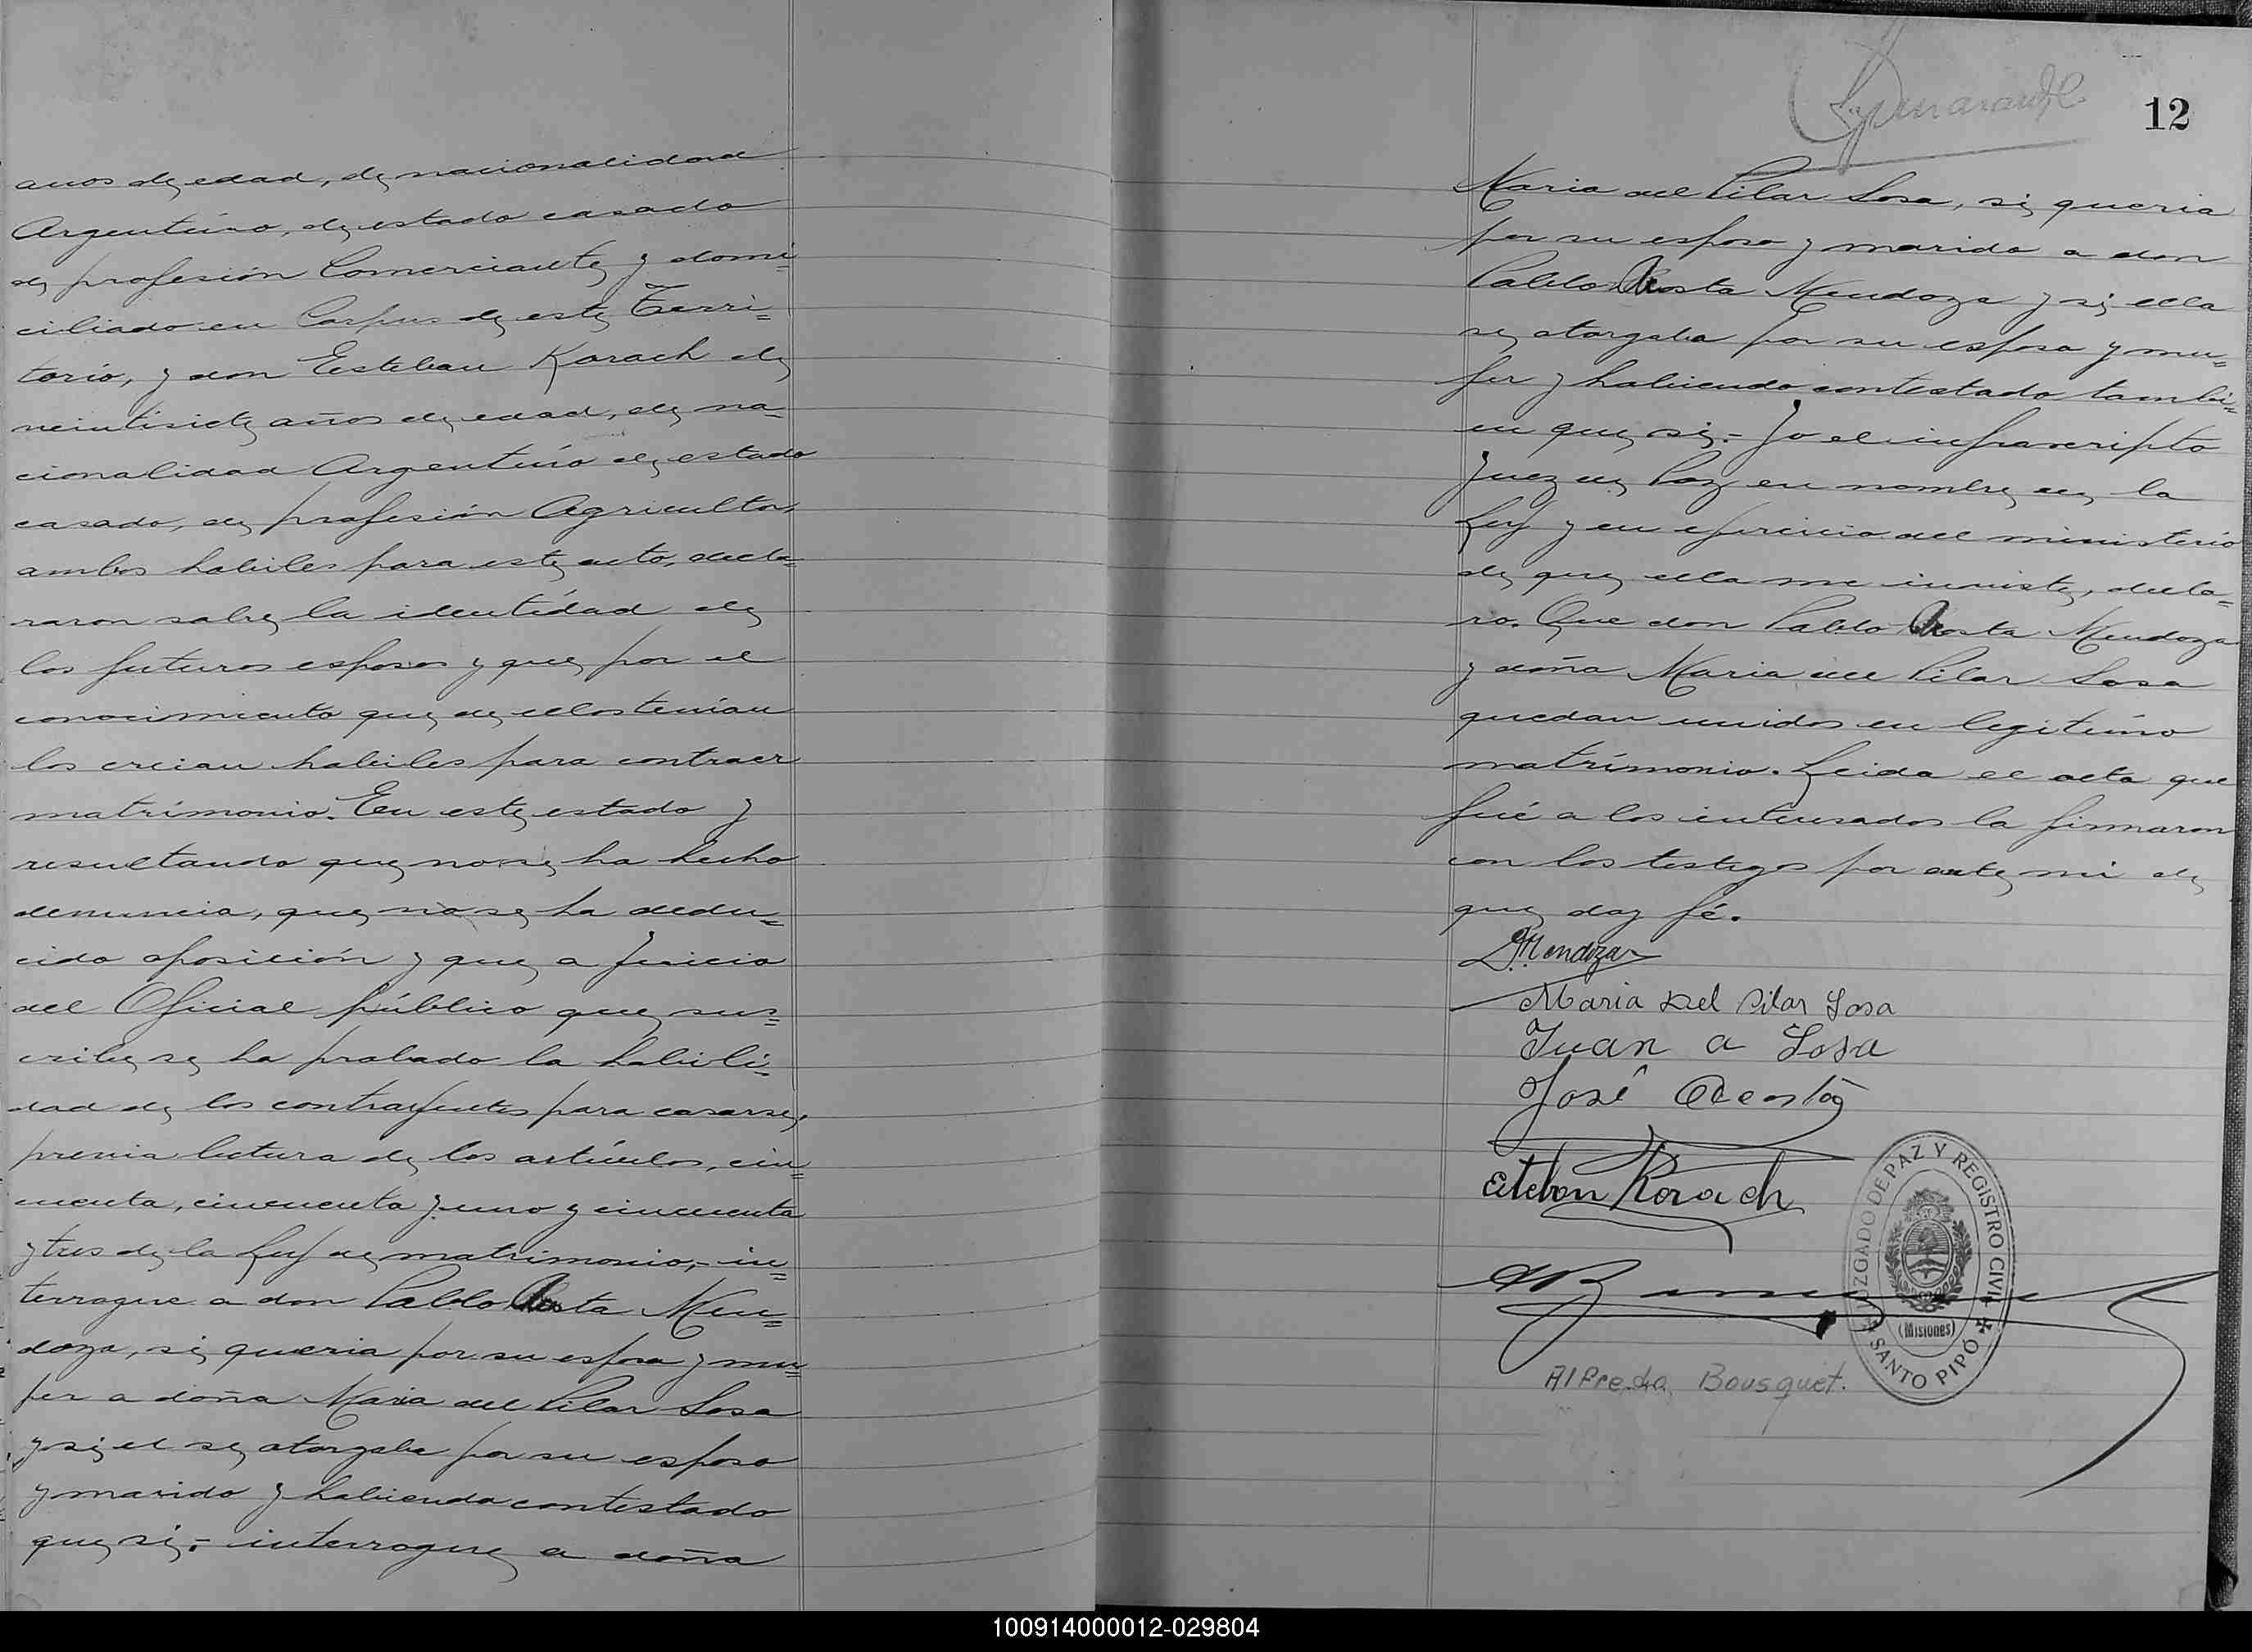 años de edad, de nacionalidad
Argentino, de estado casado
de profesión Comerciante y domi=
ciliado en Corpus de este Terri=
torio, y don Esteban Korach de
veintisiete años de edad, de na=
cionalidad Argentino de estado
casado, de profesión Agricultor,
ambos habiles para este acto, decla=
raron sobre la identidad de
los futuros esposos y que por el
conocimiento que de ellos tenían
los creian habiles para contraer
matrimonio. En este estado y
resultando que no se ha hecho
denuncia, que no se ha dedu=
cido oposición y que a juicio
del Oficial público que sus=
cribe se ha probado la habili=
dad de los contrayentes para casarse,
previa lectura de los artículos, cin=
cuenta, cincuenta y uno y cincuenta
y tres de la Ley de matrimonio,- in=
terrogue a don Pablo Acosta Men=
doza, si queria por su esposa y mu=
jer a doña Maria del Pilar Sosa
y si el se otorgaba por su esposo
y marido y habiendo contestado
que si,- interrogue a doña
12
Maria del Pilar Sosa, si queria
por su esposo y marido a don
Pablo Acosta Mendoza y si ella
se otorgaba por su esposa y mu=
jer y habiendo contestado tambi=
en que si.- Yo el infrascripto
Juez de Paz en nombre de la
Ley y en ejercicio del ministerio
de que ella me inviste, decla=
ro. Que don Pablo Acosta Mendoza
y doña Maria del Pilar Sosa
quedan unidos en legitimo
matrimonio. Leida el acta que
fué a los interesados la firmaron
con los testigos por ante mi de
que doy fé.
Mendoza
Maria del Pilar Sosa
Juan a Sosa
José Acosta
Esteban Korach
JUZGADO DE PAZ Y REGISTRO CIVIL
(Misiones)
SANTO PIPÓ
Alfredo Bousquet.
100914000012-029804